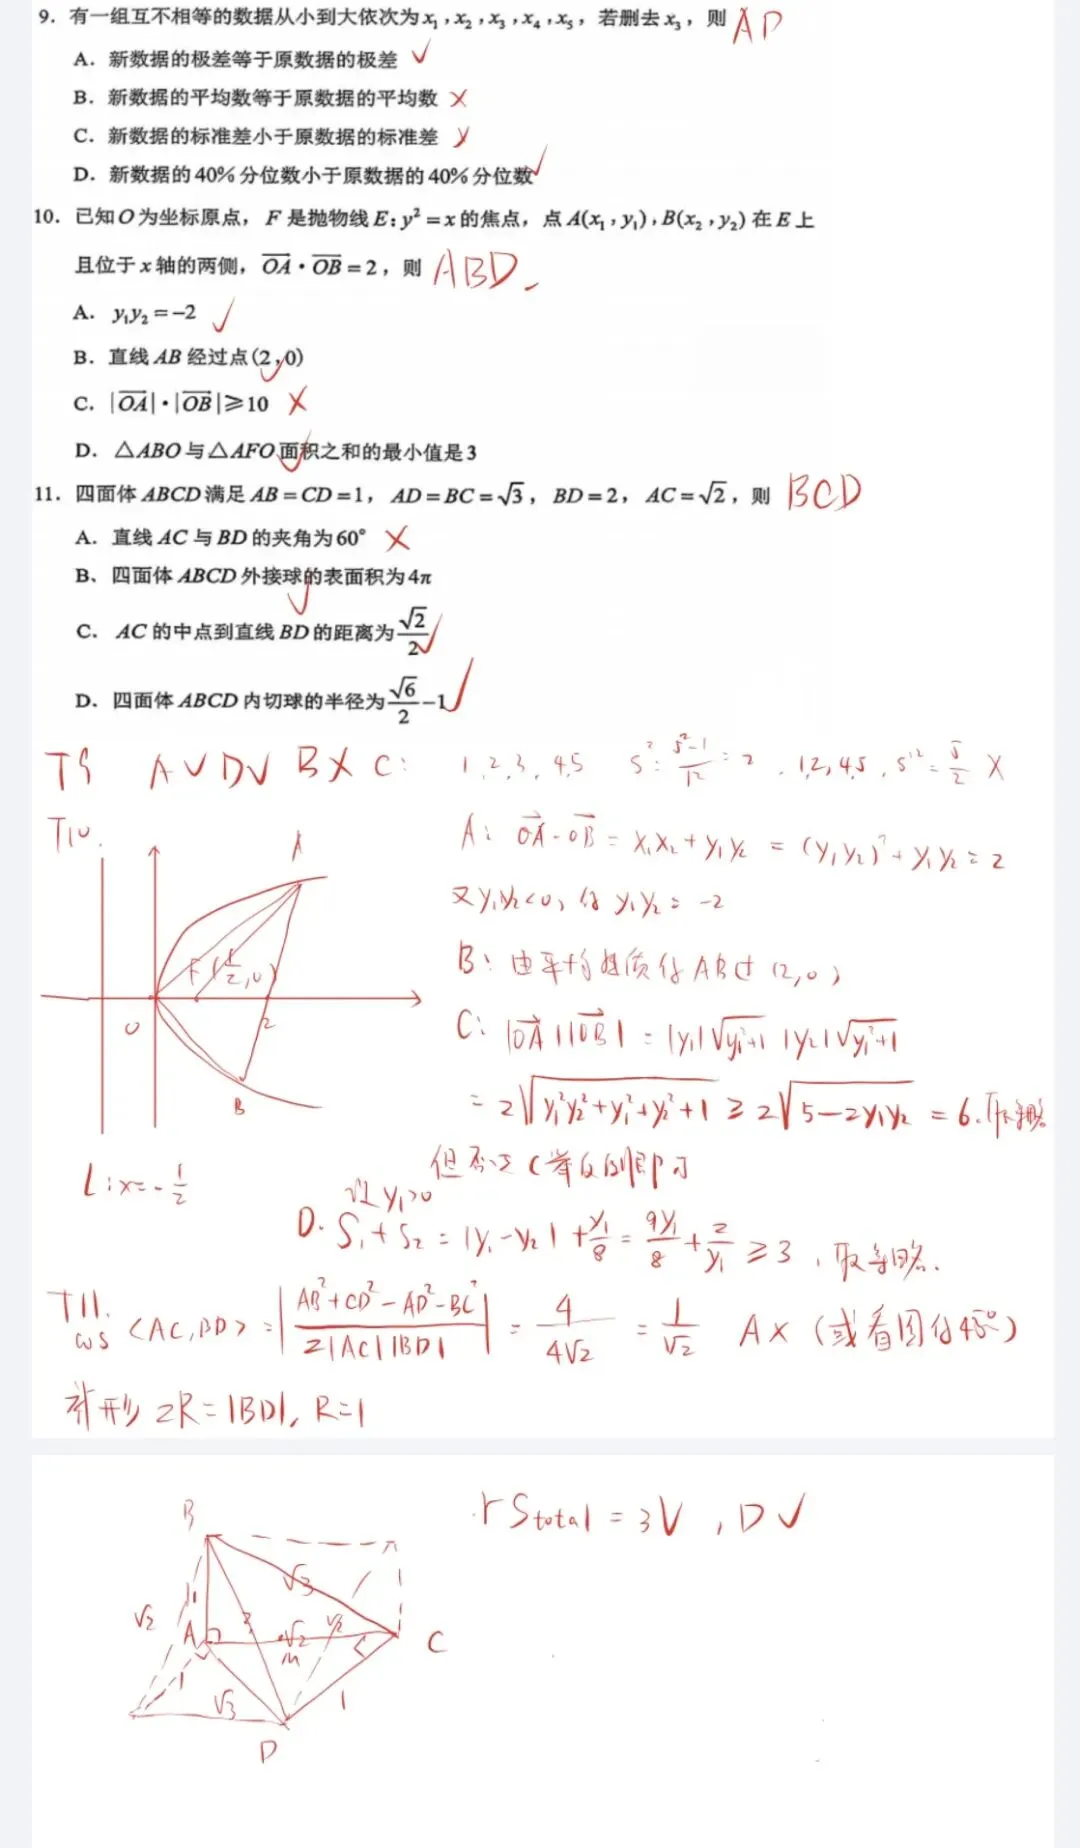 9. 有一组互不相等的数据从小到大依次为x₁,x₂,x₃,x₄,x₅，若删去x₃，则 AD
A. 新数据的极差等于原数据的极差 ✓
B. 新数据的平均数等于原数据的平均数 ×
C. 新数据的标准差小于原数据的标准差 ×
D. 新数据的40%分位数小于原数据的40%分位数 ✓
10. 已知O为坐标原点，F是抛物线E:y²=x的焦点，点A(x₁,y₁),B(x₂,y₂)在E上
且位于x轴的两侧，OA·OB=2，则 ABD.
A. y₁y₂=-2 ✓
B. 直线AB经过点(2,0) ✓
C. |OA|·|OB|≥10 ×
D. △ABO与△AFO面积之和的最小值是3 ✓
11. 四面体ABCD满足AB=CD=1，AD=BC=√3，BD=2，AC=√2，则 BCD
A. 直线AC与BD的夹角为60° ×
B. 四面体ABCD外接球的表面积为4π ✓
C. AC的中点到直线BD的距离为√2/2 ✓
D. 四面体ABCD内切球的半径为√6/2-1 ✓
T9 A✓ D✓ B× C: 1,2,3,4,5 S²=(5²-1)/12=2, 1,2,4,5, S'²=5/2 ×
T10. A: OA·OB=x₁x₂+y₁y₂=(y₁y₂)²+y₁y₂=2
又y₁y₂<0, 得y₁y₂=-2
B: 由平均性质得AB过(2,0)
C: |OA||OB|=|y₁|√(y₁²+1)|y₂|√(y₁²+1)
=2√(y₁²y₂²+y₁²+y₂²+1)≥2√(5-2y₁y₂)=6.取等略
但否定C举反例即可
A
F(1/2,0)
O
2
B
L:x=-1/2
设y₁>0
D. S₁+S₂=|y₁-y₂|+y₁/8=9y₁/8+2/y₁≥3，取等略.
T11. cos<AC,BD>=|(AB²+CD²-AD²-BC²)/(2|AC||BD|)|=4/(4√2)=1/√2 A×(或看图得45°)
补形 2R=|BD|, R=1
rS total=3V, D✓
B
√3
√2
1
2
A
√2
√2
M
C
1
√3
1
D